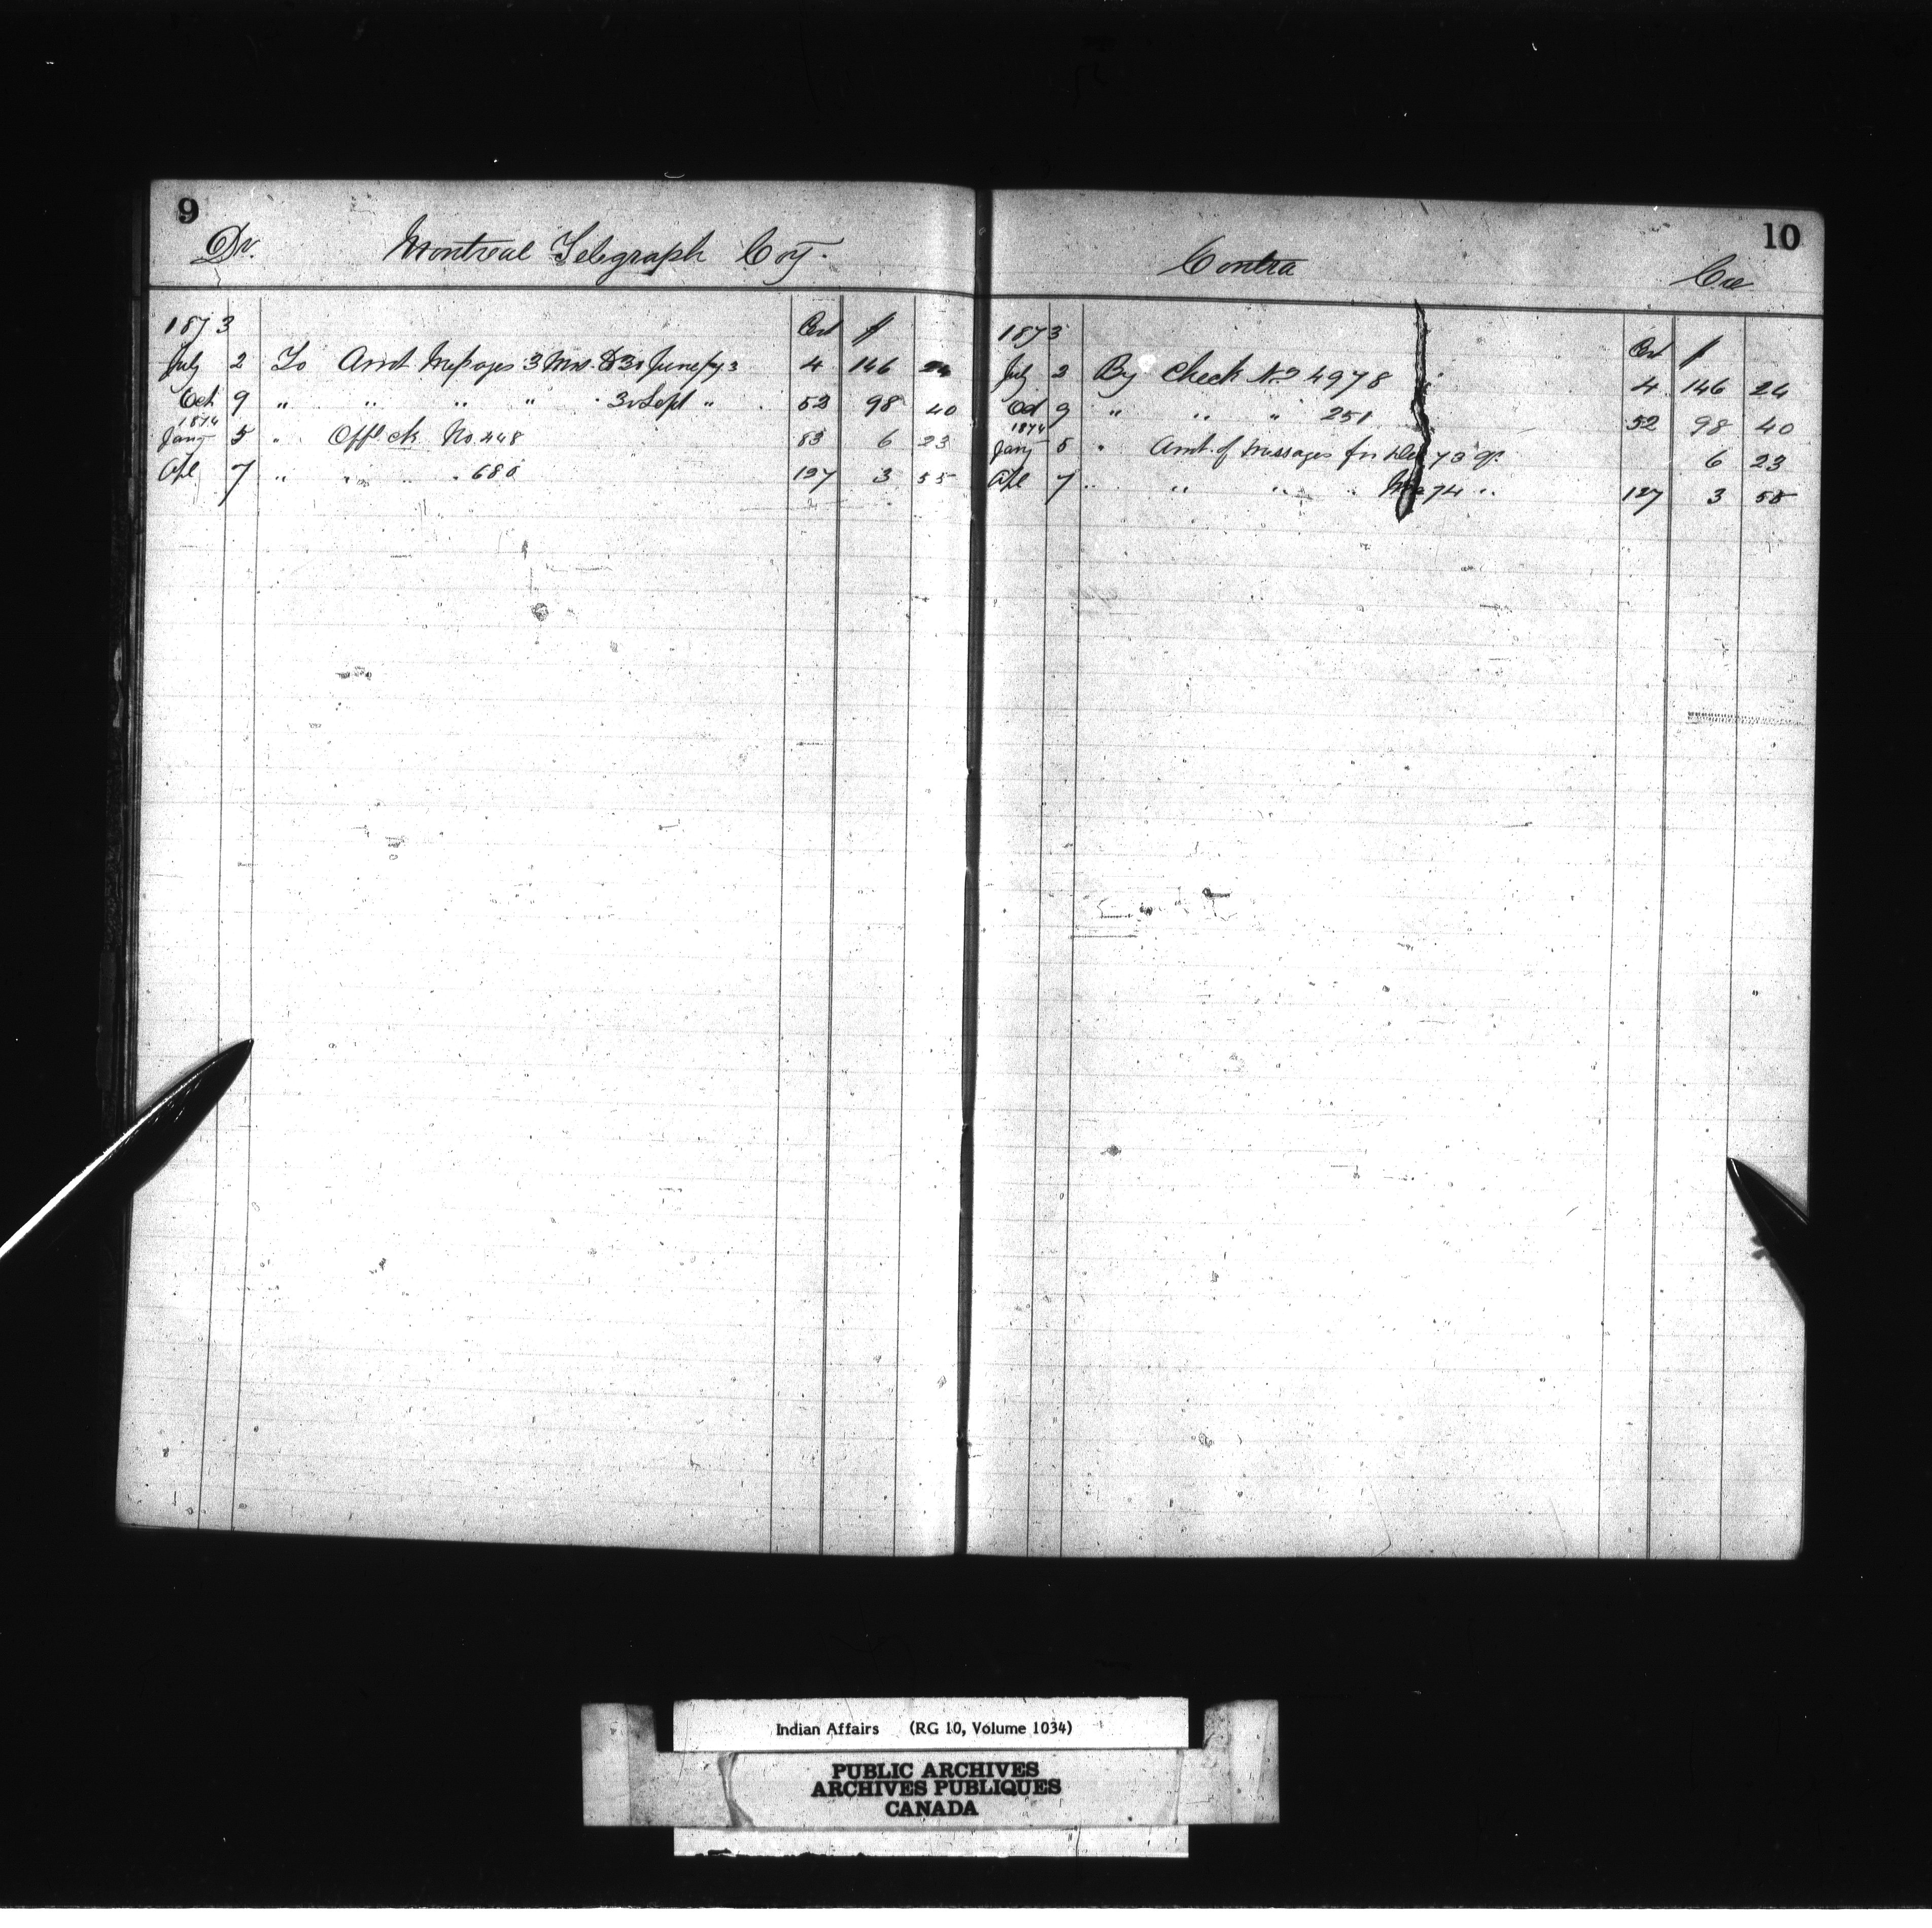 9
Dr. Montreal Telegraph Coy.
1873 Cert $
July 2 To Amt Messages 3 Mos. to 30 June/73 4 146 24
Oct 9 " " " " 30 Sept " 52 98 40
1874
Jany 5 " Offl ck No. 448 83 6 23
Apl 7 " " " " 680 127 3 55
10
Contra Cr
1873 Cert $
July 2 By Check No 4978 4 146 24
Oct 9 " " " 251 52 98 40
1874
Jany 5 " Amt. of messages for Dec 73 qr. 6 23
Apl 7 " " " " 74 " 127 3 55
Indian Affairs (RG 10, Volume 1034)
PUBLIC ARCHIVES
ARCHIVES PUBLIQUES
CANADA